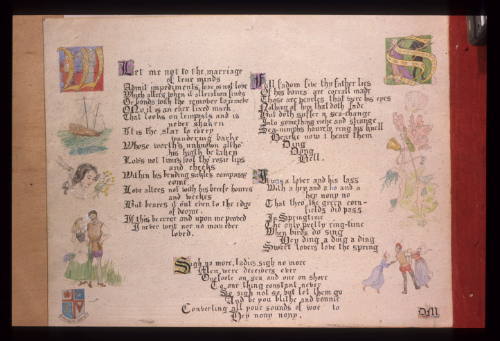 W
S
Let me not to the marriage
of true minds
Admit impediments, love is not love
Which alters when it alteration finds
Or bends with the remover to remove
O No, it is an ever fixed mark
That looks on tempests and is
never shaken
It is the star to every
wandering barke
Whose worth's unknown altho'
his highth be taken
Loves not times fool tho rosie lips
and cheeks
Within his bending sickle's compasse
come
Love alters not with his breefe houres
and weekes
But beares it out even to the edge
of doome.
If this be error and upon me proved
I never writ nor no man ever
loved.
Full fadom five thy father lies
Of his bones are corrall made
Those are pearles that were his eyes
Nothing of him that doth fade
But doth suffer a sea-change
Into something riche and strange
Sea-nimphs hourely ring his knell
Hearke now I heare them
Ding
Dong
Bell.
It was a lover and his lass
With a hey and a ho and a
hey nony no
That thro the green corn-
fields did pass
In Springtime
The only pretty ring-time
When birds do sing
Hey ding a ding a ding
Sweet lovers love the spring
Sigh no more, ladies, sigh no more
Men were deceivers ever
One foote on sea and one on shore
To one thing constant never
So sigh not so, but let them go
And be you blithe and bonnie
Converting all your sounds of woe to
Hey nony nony.